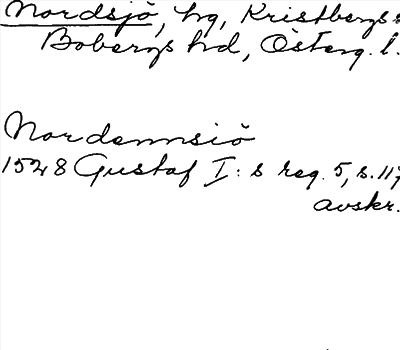 Nordsjö, hg, Kristbergs s
Bobergs hd, Österg. l.
Nordennsiö
1528 Gustaf I: s reg. 5, s. 117
avskr.